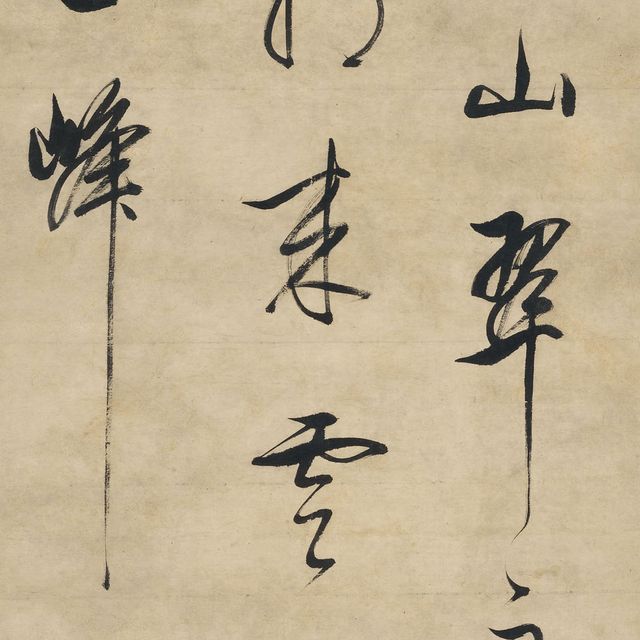 山翠
來雲
峰